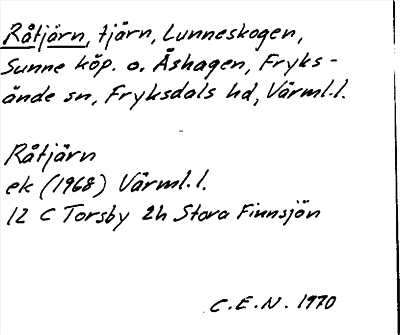 Råtjärn, tjärn, Lunneskogen,
Sunne köp. o. Åshagen, Fryks-
ände sn, Fryksdals hd, Värml.l.
Råtjärn
ek (1968) Värml.l.
12 C Torsby 2h Stora Finnsjön
C.E.N. 1970